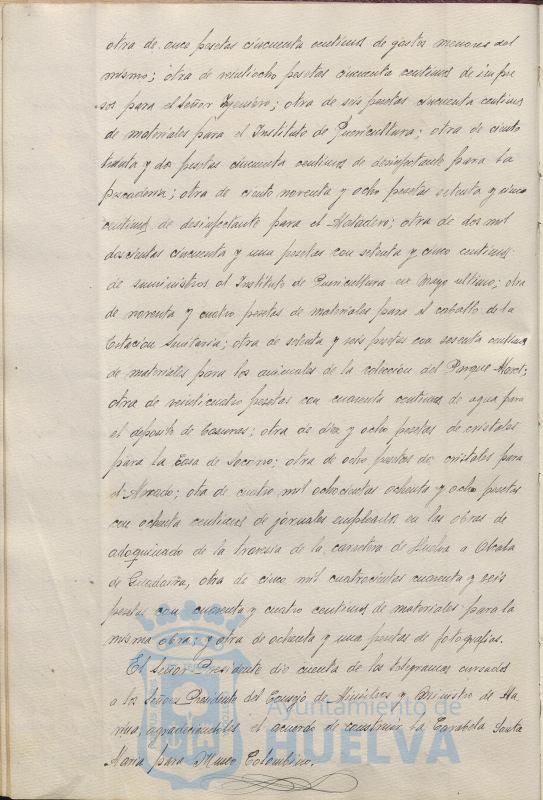 otra de once pesetas cincuenta centimos de gastos menores del
mismo; otra de veintiocho pesetas cincuenta centimos de impre
sos para el Señor Ingeniero; otra de seis pesetas cincuenta centimos
de materiales para el Instituto de Puericultura; otra de ciento
treinta y dos pesetas cincuenta centimos de desinfectante para la
pescaderia; otra de ciento noventa y ocho pesetas setenta y cinco
centimos de desinfectante para el Matadero; otra de dos mil
doscientas cincuenta y una pesetas con setenta y cinco centimos
de suministros al Instituto de Puericultura en Mayo ultimo; otra
de noventa y cuatro pesetas de materiales para el caballo de la
Estacion Sanitaria; otra de setenta y seis pesetas con sesenta centimos
de materiales para los animales de la coleccion del Parque Moret;
otra de veinticuatro pesetas con cuarenta centimos de agua para
el deposito de basuras; otra de diez y ocho pesetas de cristales
para la Casa de Socorro; otra de ocho pesetas de cristales para
el Mercado; otra de cuatro mil ochocientas ochenta y ocho pesetas
con ochenta centimos de jornales empleados en las obras de
adoquinado de la travesia de la carretera de Huelva a Alcala
de Guadaira, otra de cinco mil cuatrocientas cuarenta y seis
pesetas con cuarenta y cuatro centimos de materiales para la
misma obra; y otra de ochenta y una pesetas de fotografias.
El Señor Presidente dio cuenta de los telegramas cursados
a los Señores Presidente del Consejo de Ministros y Ministro de Ma
rina, agradeciendoles el acuerdo de construir la Carabela Santa
Maria para Museo Colombino.
Ayuntamiento de
HUELVA